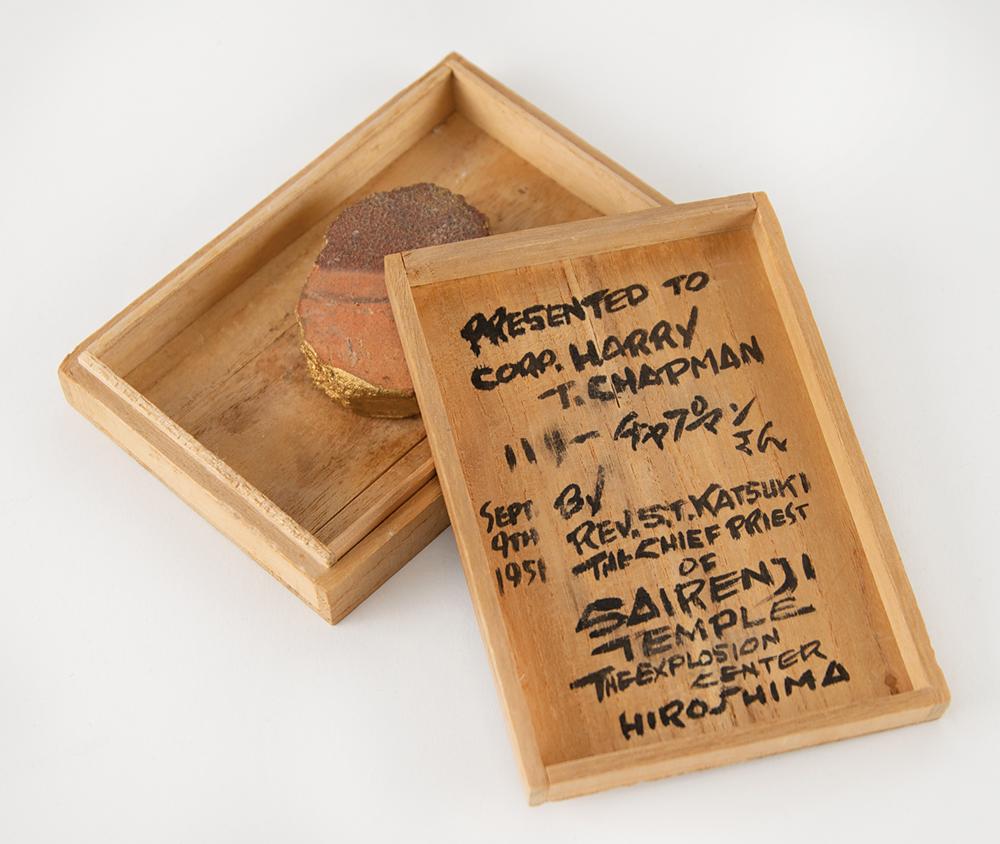 PRESENTED TO
CORP. HARRY
T. CHAPMAN
ハリー チャプマン
さん
By
REV. S.T. KATSUKI
THE CHIEF PRIEST
OF
SAIRENJI
TEMPLE
THE EXPLOSION
CENTER
HIROSHIMA
SEPT
9TH
1951